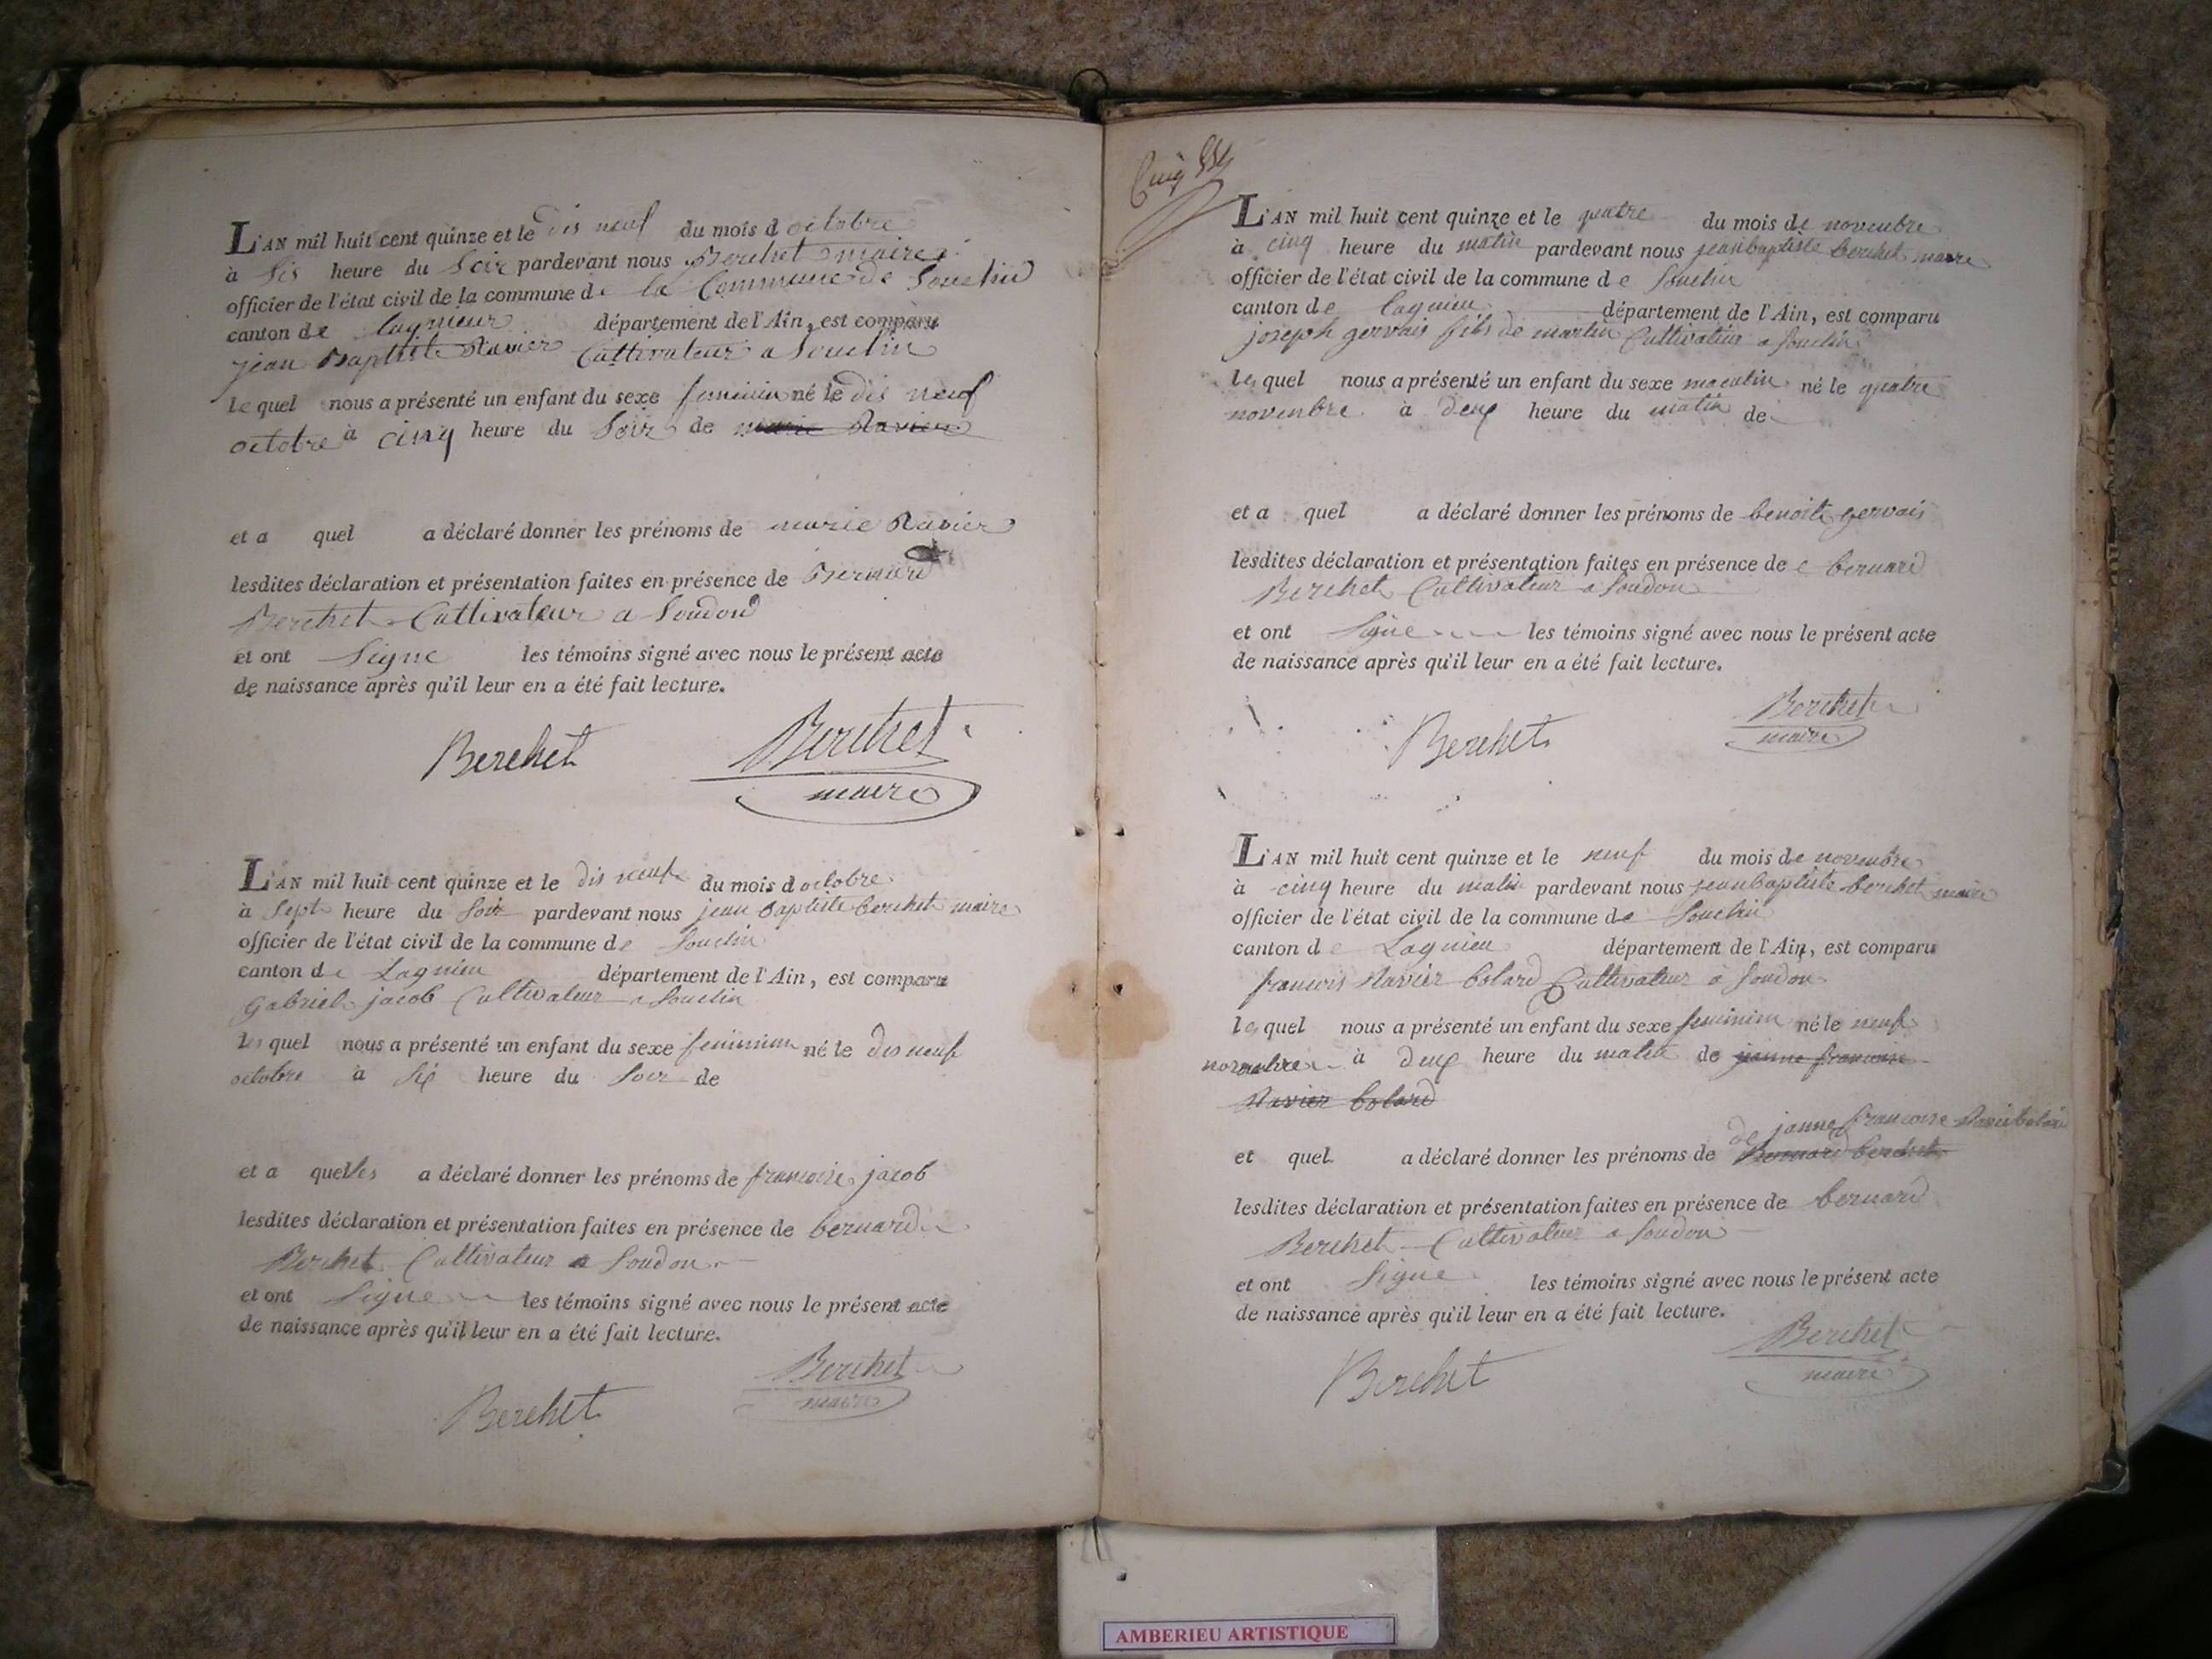 L'AN mil huit cent quinze et le dis neuf du mois d octobre
à sis heure du soir pardevant nous Berchet maire
officier de l'état civil de la commune de la Commune de Souclin
canton de lagnieur département de l'Ain, est comparu
jean Baptiste Ravier Cultivateur a Souclin
le quel nous a présenté un enfant du sexe feminin né le dis neuf
octobre à cinq heure du soir de marie Ravier
et a quel a déclaré donner les prénoms de marie Ravier
lesdites déclaration et présentation faites en présence de Bernard
Berchet Cultivateur a Soudon
et ont signe les témoins signé avec nous le présent acte
de naissance après qu'il leur en a été fait lecture.
Berchet Berchet
maire
L'AN mil huit cent quinze et le dis neuf du mois d octobre
à sept heure du soir pardevant nous jean baptiste berchet maire
officier de l'état civil de la commune de Souclin
canton de Lagnieu département de l'Ain, est comparu
gabriel jacob Cultivateur a Souclin
le quel nous a présenté un enfant du sexe feminim né le dis neuf
octobre à six heure du soir de
et a quelles a déclaré donner les prénoms de francoise jacob
lesdites déclaration et présentation faites en présence de bernard
Berchet Cultivateur a Soudon
et ont signe les témoins signé avec nous le présent acte
de naissance après qu'il leur en a été fait lecture.
Berchet Berchet
maire
Cinq
L'AN mil huit cent quinze et le quatre du mois de novembre
à cinq heure du matin pardevant nous jean baptiste berchet maire
officier de l'état civil de la commune de Souclin
canton de lagnieu département de l'Ain, est comparu
joseph gervais fils de martin Cultivateur a souclin
le quel nous a présenté un enfant du sexe masculin né le quatre
novembre à deux heure du matin de
et a quel a déclaré donner les prénoms de benoite gervais
lesdites déclaration et présentation faites en présence de bernard
Berchet Cultivateur a Soudon
et ont signe les témoins signé avec nous le présent acte
de naissance après qu'il leur en a été fait lecture.
Berchet Berchet
maire
L'AN mil huit cent quinze et le neuf du mois de novembre
à cinq heure du matin pardevant nous jean baptiste berchet maire
officier de l'état civil de la commune de Souclin
canton de Lagnieu département de l'Ain, est comparu
francois Ravier bolard Cultivateur a soudon
le quel nous a présenté un enfant du sexe feminim né le neuf
novembre à deux heure du matin de janne francoise
Ravier bolard
de janne francoise Ravier bolard
et quel a déclaré donner les prénoms de Bernard berchet
lesdites déclaration et présentation faites en présence de bernard
Berchet Cultivateur a Soudon
et ont signe les témoins signé avec nous le présent acte
de naissance après qu'il leur en a été fait lecture.
Berchet Berchet
maire
AMBERIEU ARTISTIQUE